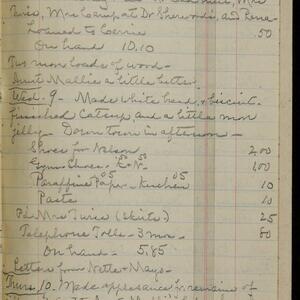 Davis, Mrs Camp, at Dr Sherwoods, and Rena
Loaned to Corrie .50
On hand 10.10
Two more loads of wood -
Aunt Mallie a little better
Wed. 9 - Made white bread, & biscuit.
Finished Catsup and a little more
jelly - Down town in afternoon -
Shoes for Nelson 2.00
Gym. Shoes - K & N - 1.00
Paraffine Paper - Kitchen 10
Paste 10
Pd. Mrs (Skirts) 25
Telephone Tolls - 3 mo - 80
On hand - 5.85
Letters from Netta & Mayo -
Thurs. 10. Made appearance for remains of